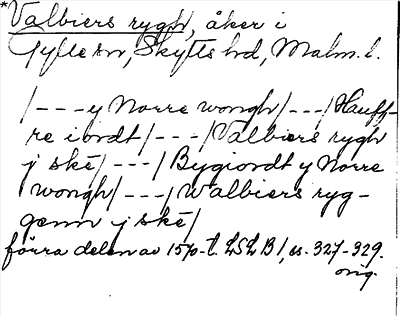 *Valbiers rygh, åker i
Gylle sn, Skytts hd, Malm. l.
/---y Norre wongh/---/Hauff-
re iordt/---/Valbiers rygh
j skē/---/Bygiordt y Norre
wongh/---/Walbiers ryg-
genn j skē/
förra delen av 1570-t. LSLB1, ss. 327-329.
orig.